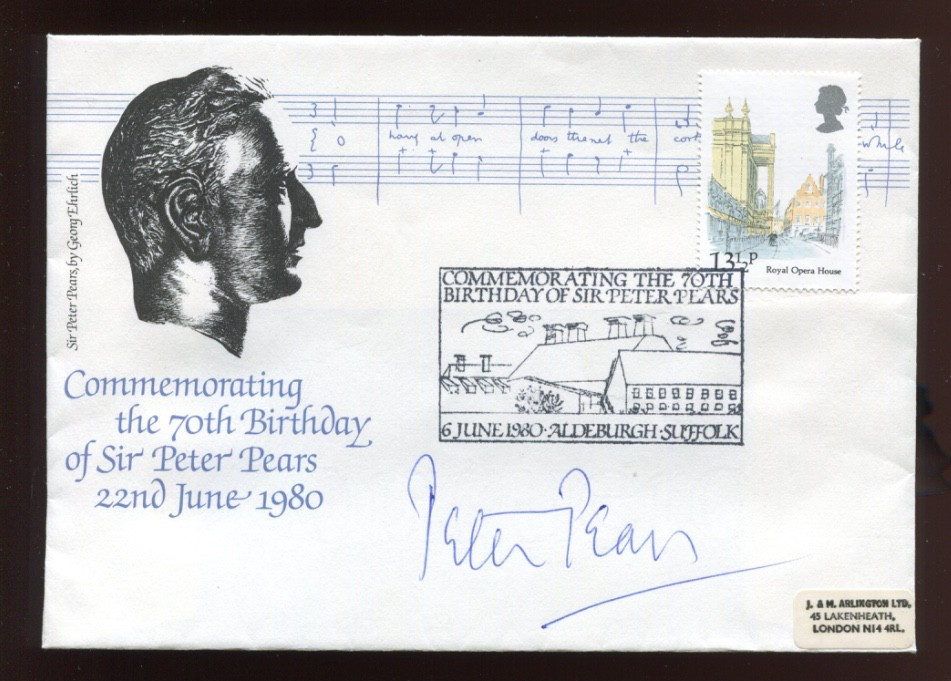 O hang at open doors the net the cork
while
Sir Peter Pears, by Georg Ehrlich
13½P
Royal Opera House
COMMEMORATING THE 70TH
BIRTHDAY OF SIR PETER PEARS
6 JUNE 1980·ALDEBURGH·SUFFOLK
Commemorating
the 70th Birthday
of Sir Peter Pears
22nd June 1980
Peter Pears
J. & M. ARLINGTON LTD.
45 LAKENHEATH,
LONDON N14 4RL.